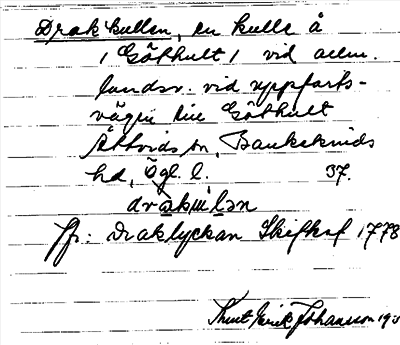 Drakkullen, en kulle å
/Göthult/ vid allm.
landsv. vid uppfarts-
vägen till Göthult
Åttvids sn, Bankekinds
hd, Ögl. l. 37.
Jfr: Draklyckan Skifteshandl 1778
Knut Erik Johansson